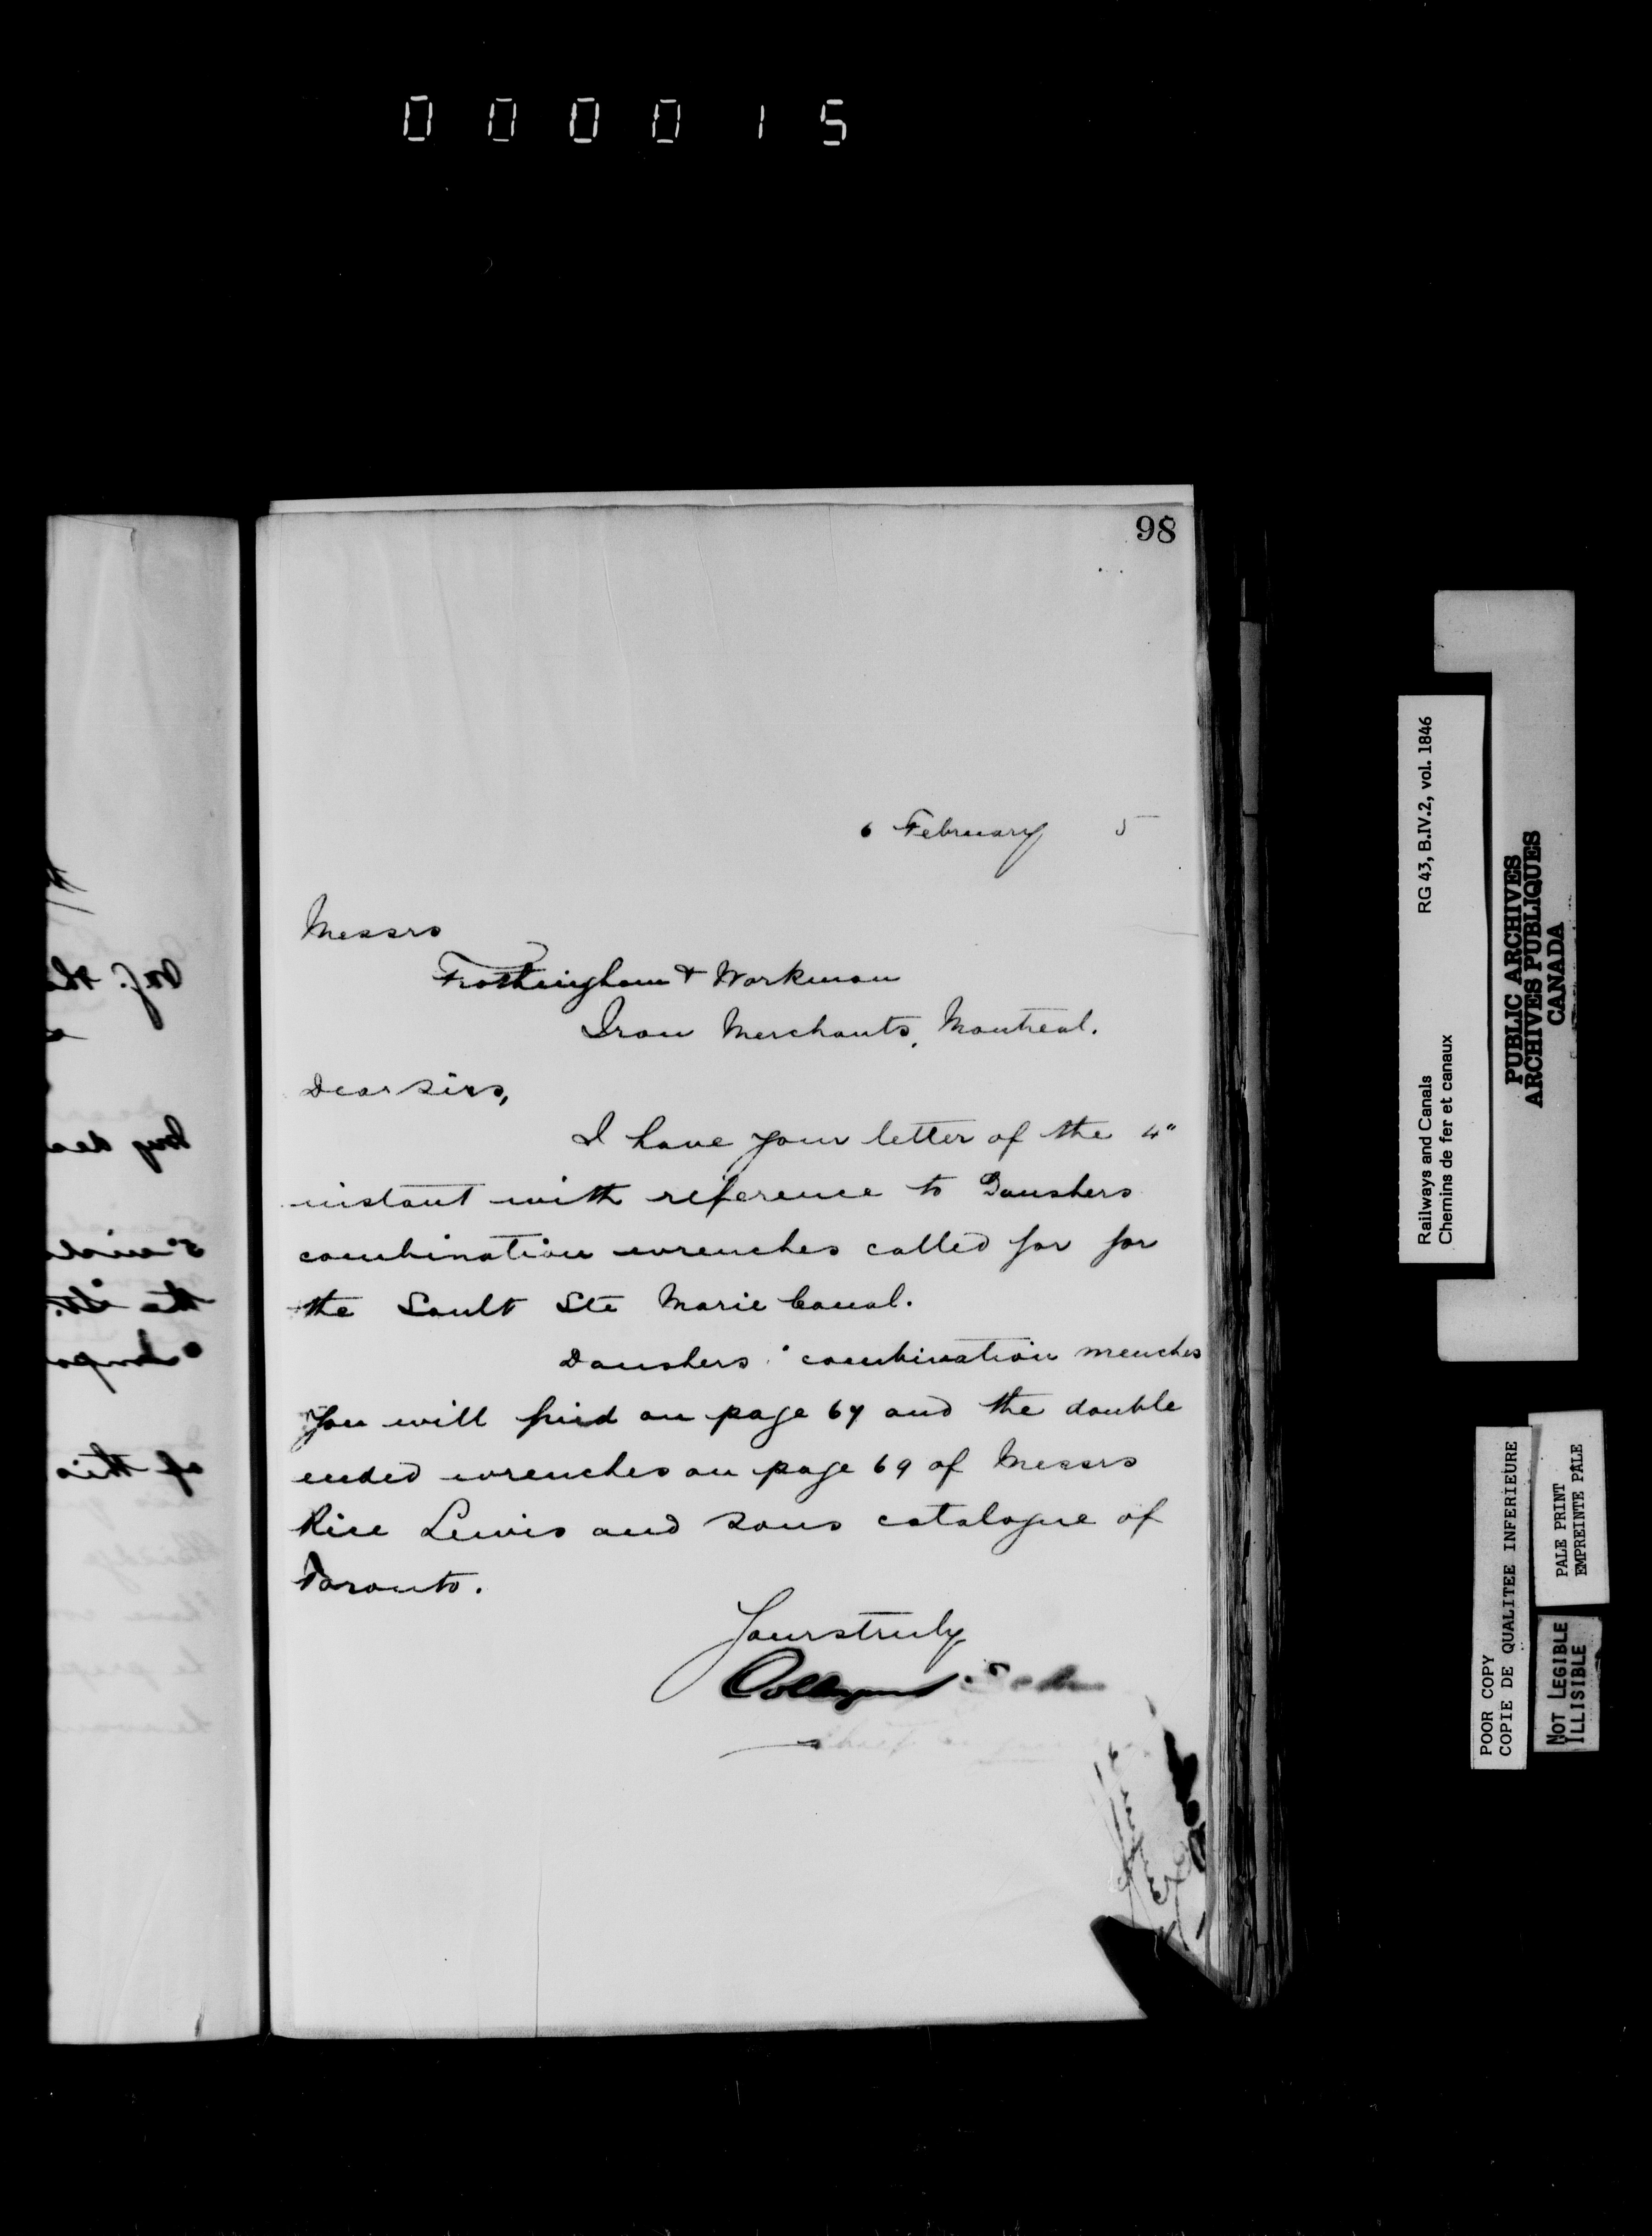 0 0 0 0 1 5
98
6 February 5
Messrs
Frothingham & Workman
Iron Merchants, Montreal.
Dear Sirs,
I have your letter of the 4"
instant with reference to
combination wrenches called for for
the Sault Ste Marie Canal.
combination wrenches
You will find on page 67 and the double
ended wrenches on page 69 of Messrs
Rice Lewis and Sons catalogue of
Toronto.
Yours truly
of this
Railways and Canals RG 43, B.IV.2, vol. 1846
Chemins de fer et canaux
PUBLIC ARCHIVES
ARCHIVES PUBLIQUES
CANADA
POOR COPY
COPIE DE QUALITEE INFERIEURE
PALE PRINT
EMPREINTE PÂLE
NOT LEGIBLE
ILLISIBLE